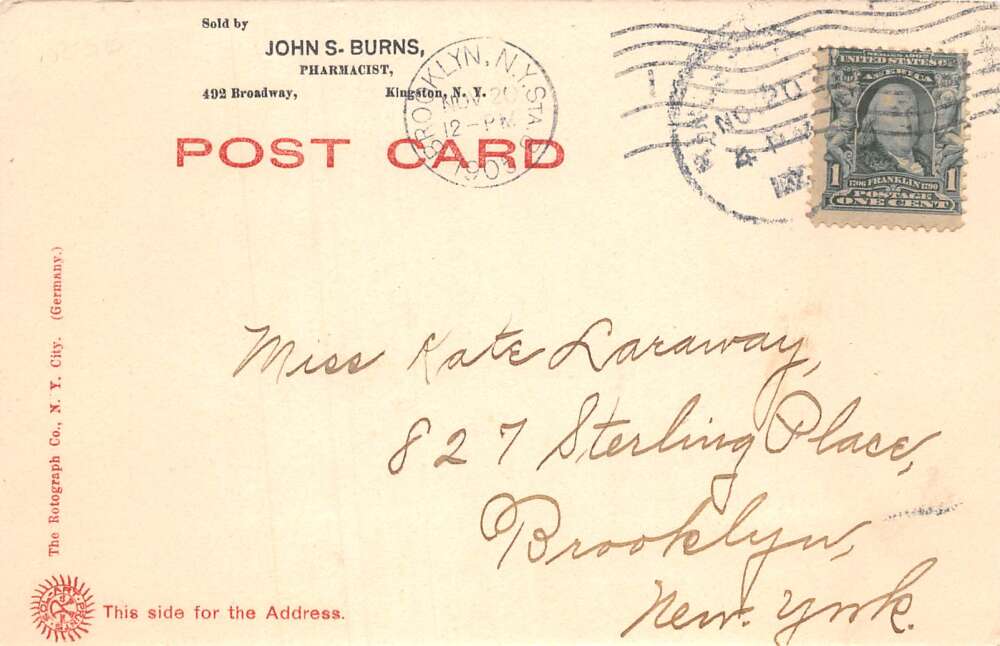 Sold by
JOHN S- BURNS,
PHARMACIST,
492 Broadway, Kingston, N. Y.
POST CARD
BROOKLYN, N.Y. STA
NOV 20
12-PM
1905
NOV 20
UNITED STATES OF
AMERICA
1 1706 FRANKLIN 1790 1
POSTAGE
ONE CENT
Miss Kate Laraway,
827 Sterling Place,
Brooklyn,
New York.
The Rotograph Co., N. Y. City. (Germany.)
This side for the Address.